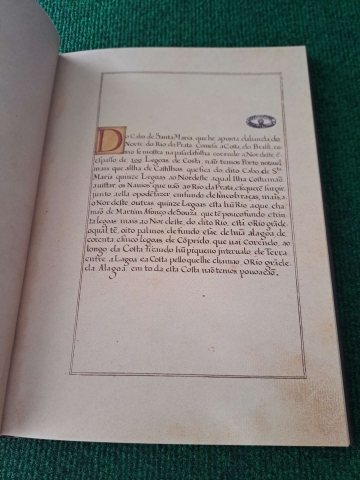 Do Cabo de Santa Maria, que he a ponta da banda do
Norte do Rio da Prata, Começa, a Costa, do Brasil,
se mostra na pasada folha corendo ao Nordeste,
espasso de 300 Legoas de Costa, não temos Porto notavel
mais que a Ilha de Castilhos que fica do dito Cabo de Sta
Maria quinze Legoas ao Nordeste a qual Ilha Costumão
avistar, os Navios que vão ao Rio da Prata,
junto a ella o podê fazer, em fundo de sinco braças, mais,
ao Nordeste outras, quinze Legoas está hũ Rio a que, cha-
mão de Martim Afonço de Souza que tê pouco fundo e trin-
ta legoas mais ao Nordeste, do dito Rio, está o Rio grãde
o qual tê, oito palmos de fundo e sae de hũa alagoa de
corenta cinco legoas de Côprido, que vai Corendo, ao
longo da Costa ficando hũ piqueno intervalo de Terra
entre a Lagoa e a Costa pello que lhe chamão, O Rio grãde
da Alagoa, em toda esta Costa não temos povoação,